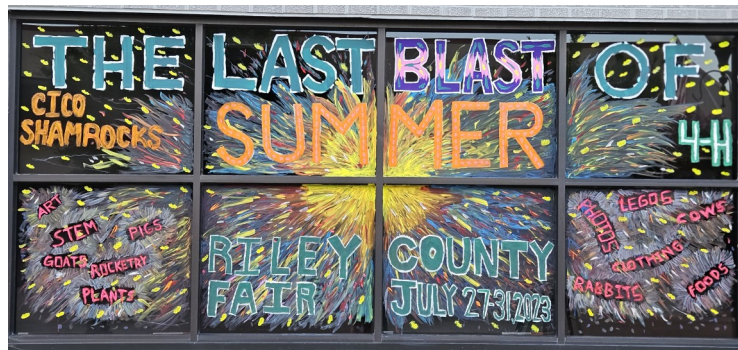 THE LAST BLAST OF
SUMMER
CICO
SHAMROCKS
4-H
ART
STEM
PIGS
GOATS
ROCKETRY
PLANTS
RILEY COUNTY
FAIR JULY 27-31, 2023
PHOTOS
LEGOS
COWS
CLOTHING
RABBITS
FOODS